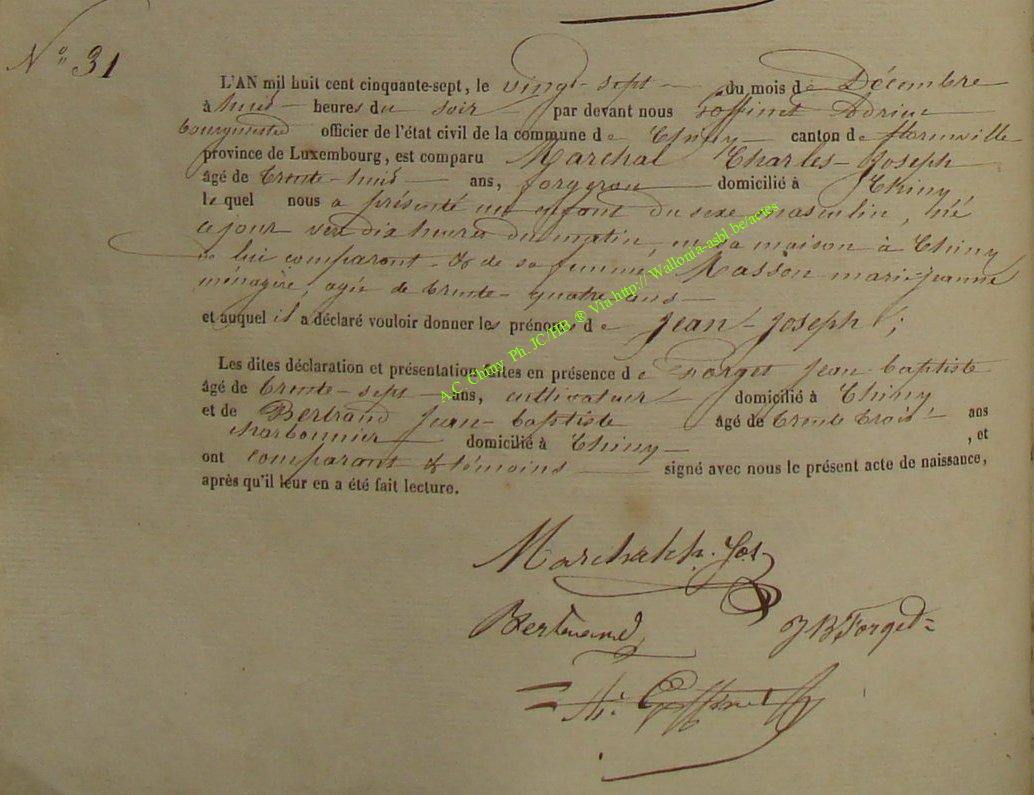 N° 31
L'AN mil huit cent cinquante-sept, le vingt-sept du mois de Décembre
à huit heures du soir par devant nous Goffinet
bourgmestre officier de l'état civil de la commune de Chiny canton de florenville
province de Luxembourg, est comparu Marchal Charles-Joseph
âgé de trente-huit ans, forgeron domicilié à Chiny
lequel nous a présenté un enfant du sexe masculin, né
ce jour vers dix heures du matin, en sa maison à Chiny
de lui comparant & de sa femme Masson marie-jeanne
ménagère, agée de trente-quatre ans
et auquel il a déclaré vouloir donner les prénoms de Jean-Joseph ;
Les dites déclaration et présentation faites en présence de Forget Jean baptiste
âgé de trente-sept ans, cultivateur domicilié à Chiny
et de Bertrand Jean-baptiste âgé de trente trois ans
charbonnier domicilié à Chiny , et
ont comparant & témoins signé avec nous le présent acte de naissance,
après qu'il leur en a été fait lecture.
Marchal Ch. Jos.
Bertrand JB Forget
Goffinet
A.C. Chiny Ph. JC/HB ® Via http://Wallonia-asbl.be/actes